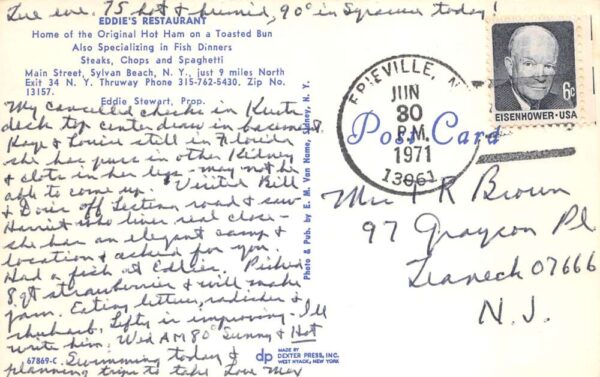 Tue eve. 75 hot & humid, 90° in Syracuse today!
EDDIE'S RESTAURANT
Home of the Original Hot Ham on a Toasted Bun
Also Specializing in Fish Dinners
Steaks, Chops and Spaghetti
Main Street, Sylvan Beach, N. Y., just 9 miles North
Exit 34 N. Y. Thruway Phone 315-762-5430. Zip No.
13157.
Eddie Stewart, Prop.
My cancelled checks in
desk top center draw in basement
Kay & Louise still in Florida
she has puss in other Kidney
& clots in her legs - may not be
able to come up. Visited Bill
& Doris off Section road & saw
Harriet who lives real close -
she has an elegant camp &
location & asked for you.
Had a fish at Eddies. Picked
8 qt strawberries & will make
jam. Eating lettuce, radishes &
rhubarb. Lefty is improving - I'll
write him. Wed AM 80° Sunny & Hot
Swimming today &
planning trips to take Love
67869-C
Photo & Pub. by E. M. Van Horne, Sidney, N. Y.
dp
MADE BY
DEXTER PRESS, INC.
WEST NYACK, NEW YORK
Post Card
ERIEVILLE, N.
JUN
30
P.M.
1971
13061
6c
EISENHOWER · USA
R Brown
97 Grayson Pl
Teaneck 07666
N. J.